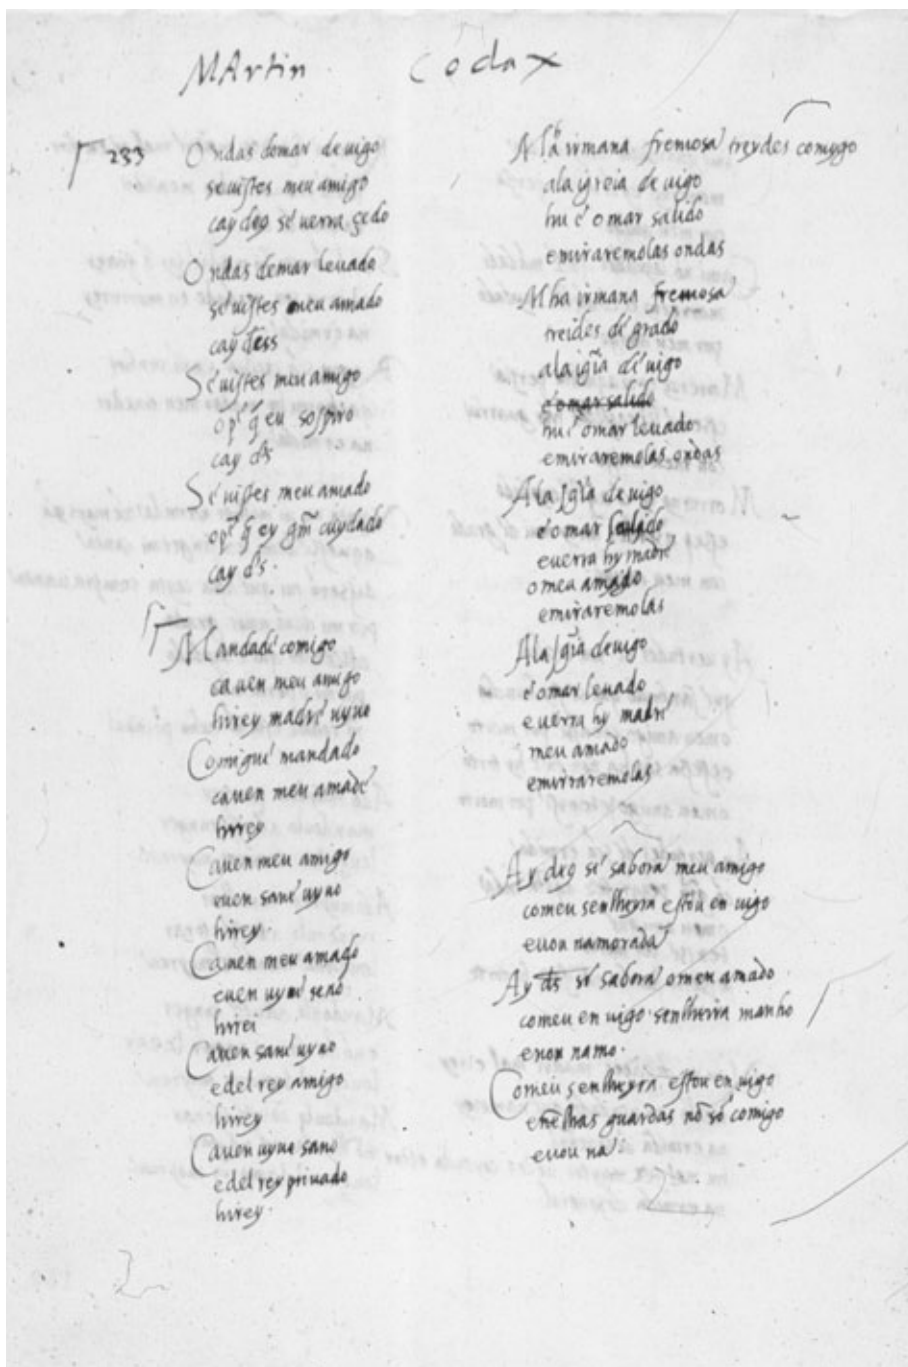 Martin Codax
233 Ondas domar de uigo
se uistes meu amigo
cay deg se uerra çedo
Ondas demar leuado
se uistes meu amado
cay dess
Se uistes meu amigo
o p̄ q̄ eu sospiro
cay ds
Se uistes meu amado
op̄ q̄ ey gm̃ cuydado
cay ds.
Mandade comigo
ca uen meu amigo
hirey madre uyuo
Comigue mandado
ca uen meu amado
hirey
Ca uen meu amigo
euen sane uyuo
hirey.
Ca uen meu amado
euen uyue sano
hirei
Ca uen sane uyuo
edel rey amigo
hirey
Ca uen uyuo sano
edel rey priuado
hirey.
Mha irmana fremosa treydes comygo
ala igreia de uigo
hu e o mar salido
emiraremolas ondas
Mha irmana fremosa
treides de grado
ala igia de uigo
e o mar salido
hu e o mar leuado
emiraremolas ondas
Ala Igia de uigo
e o mar salado
euerra hy madre
o meu amado
emiraremolas
Ala Igia de uigo
e o mar leuado
euerra hy madre
meu amado
emiraremolas
Ay deg se sabora meu amigo
comeu senlheyra estou en uigo
euou namorada
Ay ds se sabora o meu amado
comeu en uigo senlheira manho
euou namo.
Comeu senlheyra estou en uigo
enelhas guardas nõ sõ comigo
euou na